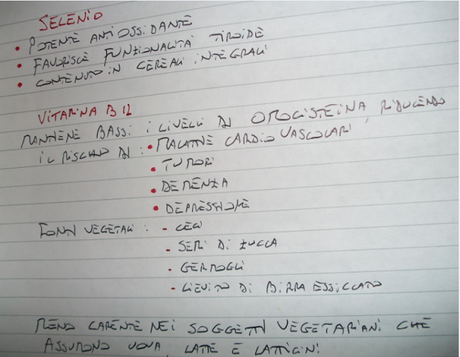 SELENIO
• POTENTE ANTIOSSIDANTE
• FAVORISCE FUNZIONALITÀ TIROIDE
• CONTENUTO IN CEREALI INTEGRALI
VITAMINA B12
MANTIENE BASSI I LIVELLI DI OMOCISTEINA, RIDUCENDO
IL RISCHIO DI: • MALATTIE CARDIOVASCOLARI
• TUMORI
• DEMENZA
• DEPRESSIONE
FONTI VEGETALI: - CECI
- SEMI DI ZUCCA
- GERMOGLI
- LIEVITO DI BIRRA ESSICCATO
MENO CARENTE NEI SOGGETTI VEGETARIANI CHE
ASSUMONO UOVA LATTE E LATTICINI